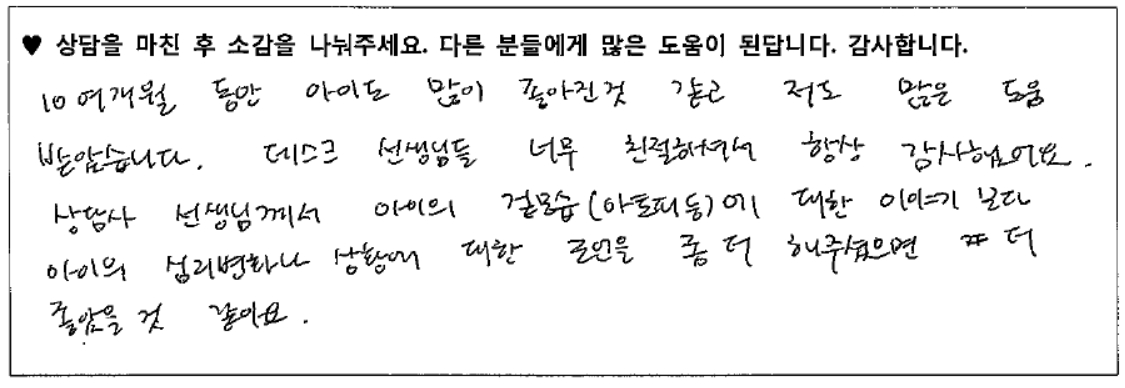 ♥ 상담을 마친 후 소감을 나눠주세요. 다른 분들에게 많은 도움이 된답니다. 감사합니다.
10여개월 동안 아이도 많이 좋아진것 같고 저도 많은 도움
받았습니다. 데스크 선생님들 너무 친절하셔서 항상 감사했어요.
상담사 선생님께서 아이의 겉모습(아토피등)에 대한 이야기 보다
아이의 심리변화나 상황에 대한 조언을 좀 더 해주셨으면 더
좋았을 것 같아요.